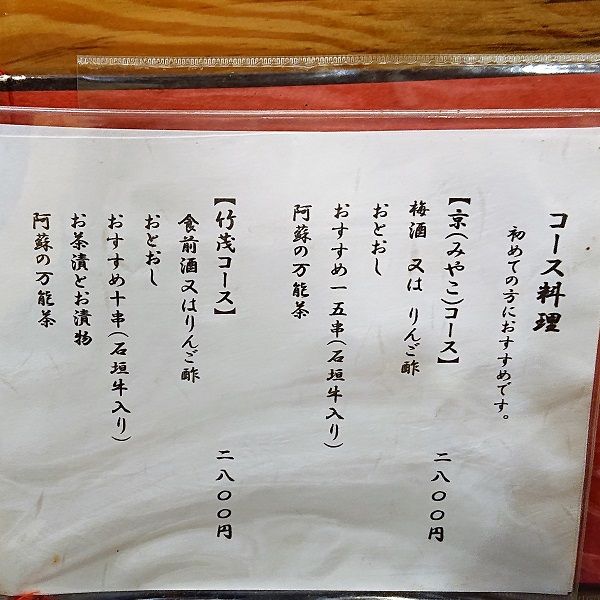 コース料理
初めての方におすすめです。
【京(みやこ)コース】 二八〇〇円
梅酒 又は りんご酢
おとおし
おすすめ一五串(石垣牛入り)
阿蘇の万能茶
【竹茂コース】 二八〇〇円
食前酒又はりんご酢
おとおし
おすすめ十串(石垣牛入り)
お茶漬とお漬物
阿蘇の万能茶